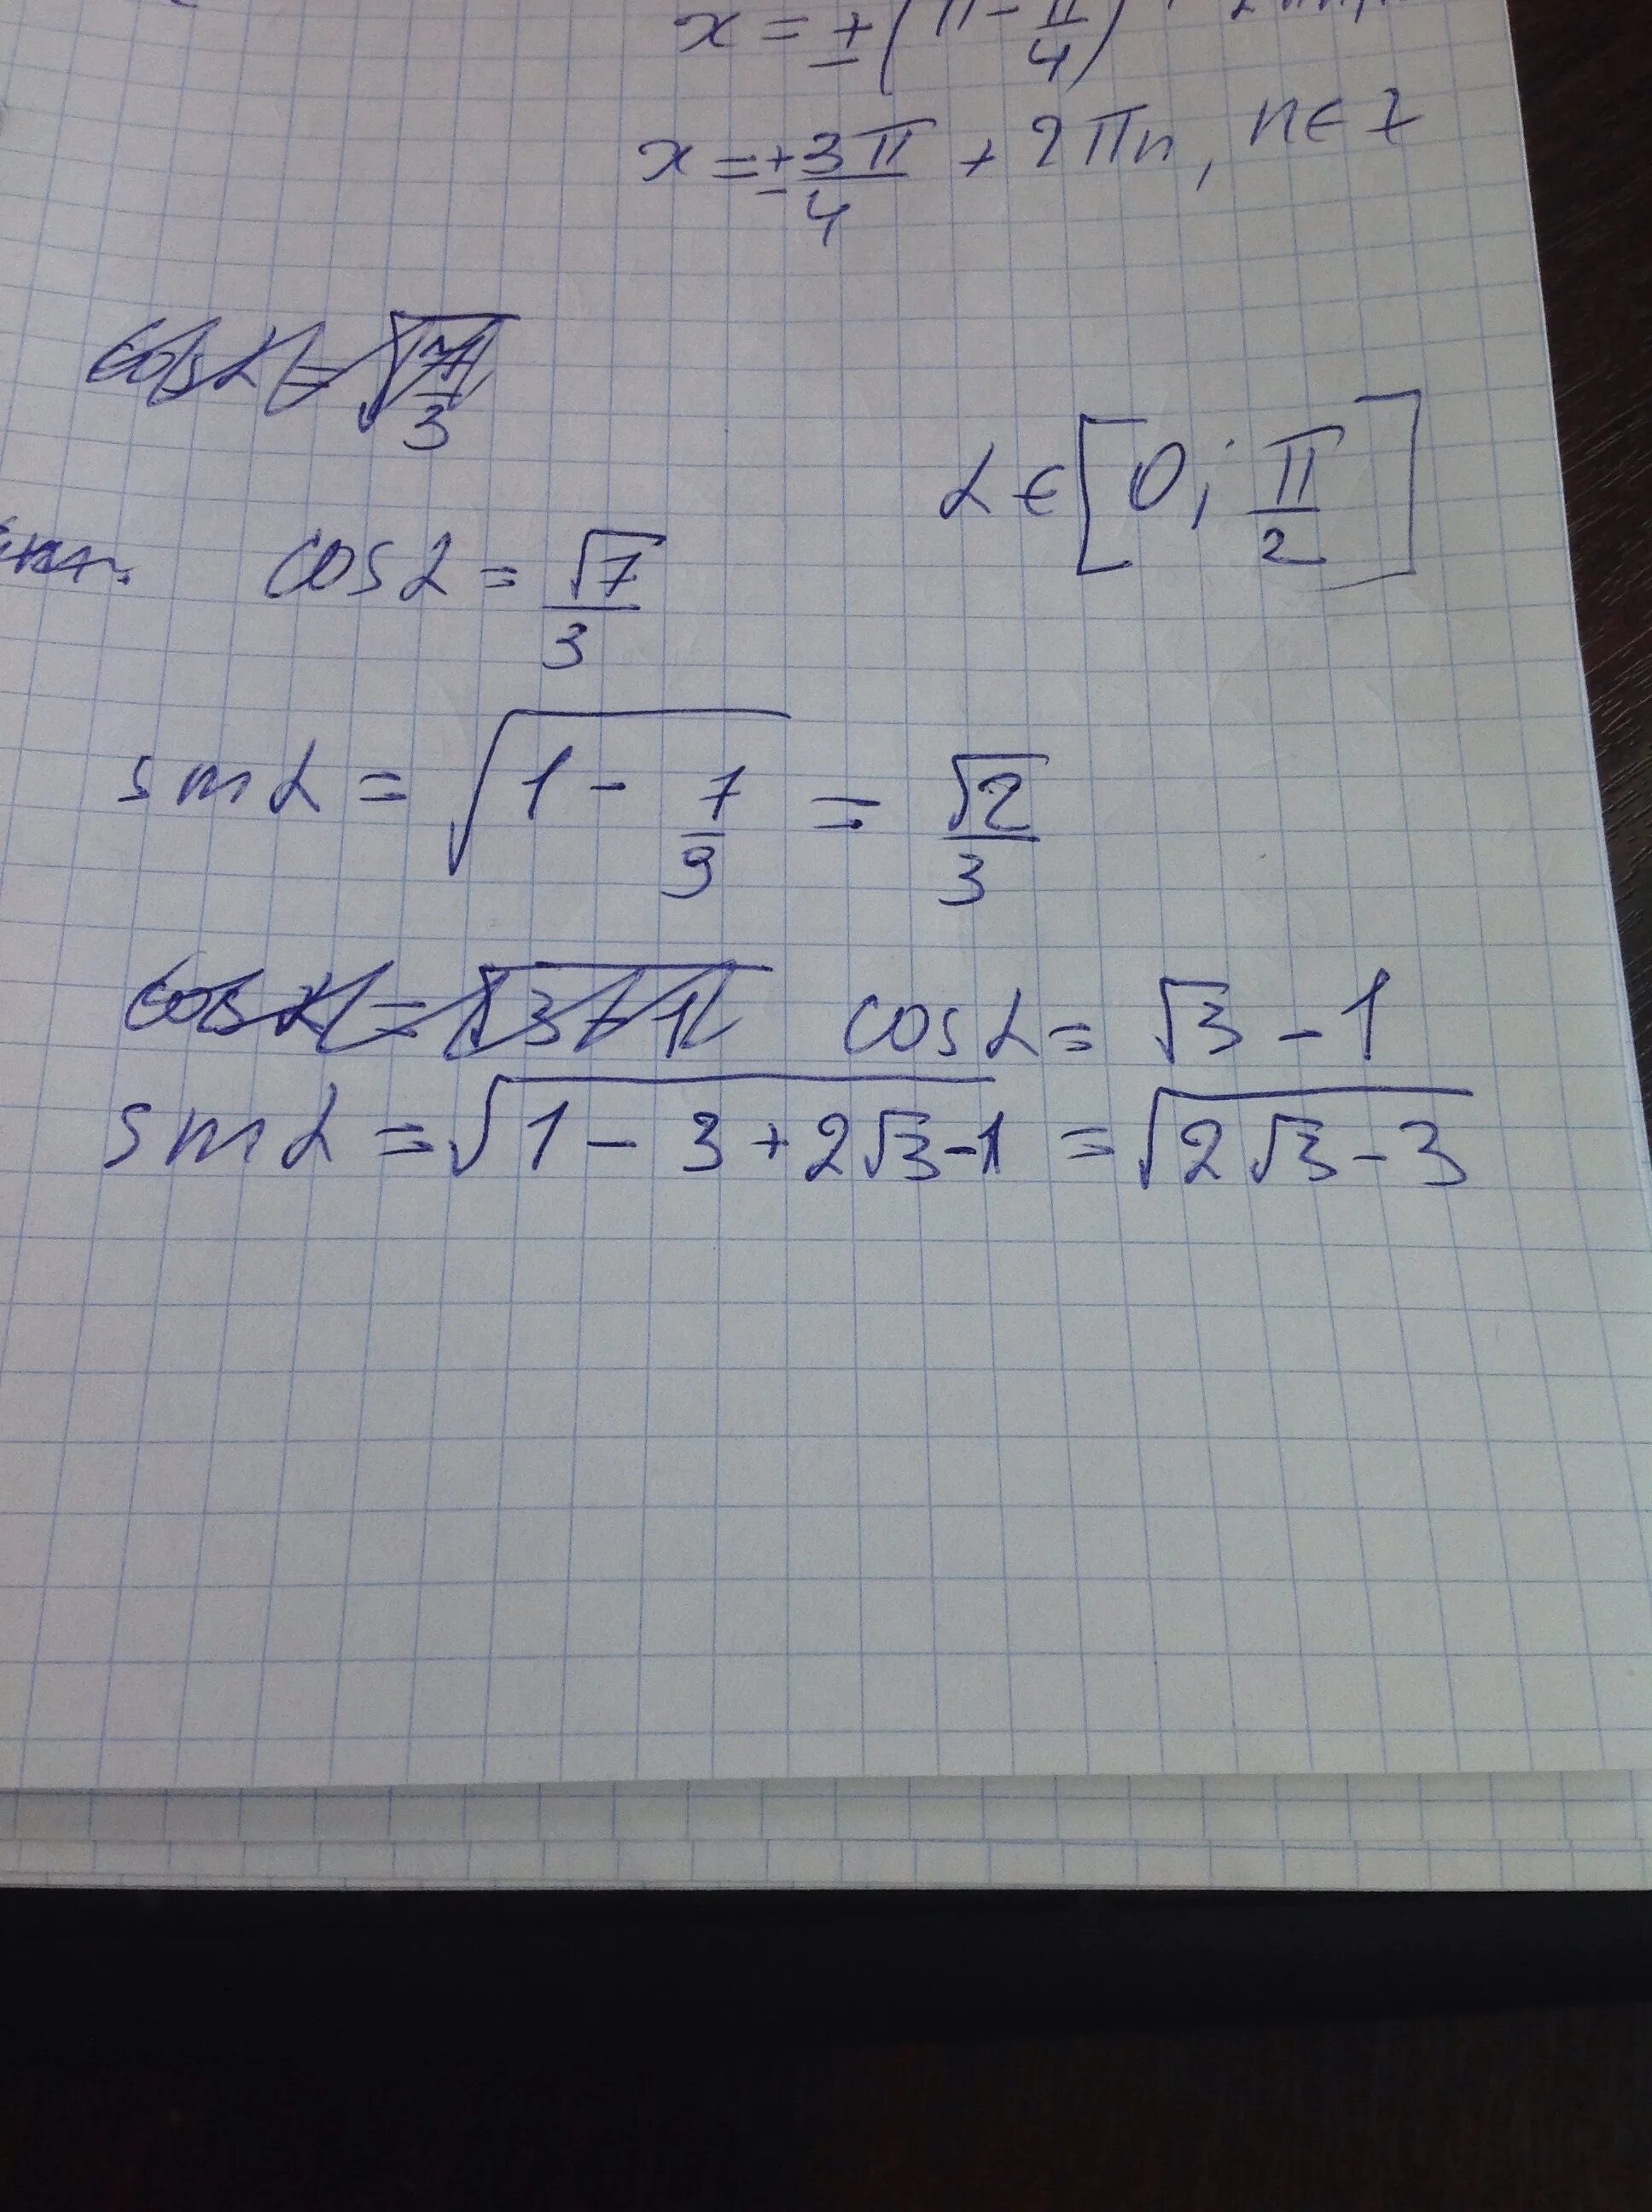 x = ±(π - π/4)
x = ± 3π/4 + 2πn, n ∈ Z
α ∈ [0; π/2]
cos α = √7/3
sin α = √(1 - 7/9) = √2/3
cos α = √3 - 1
sin α = √(1 - 3 + 2√3 - 1) = √(2√3 - 3)